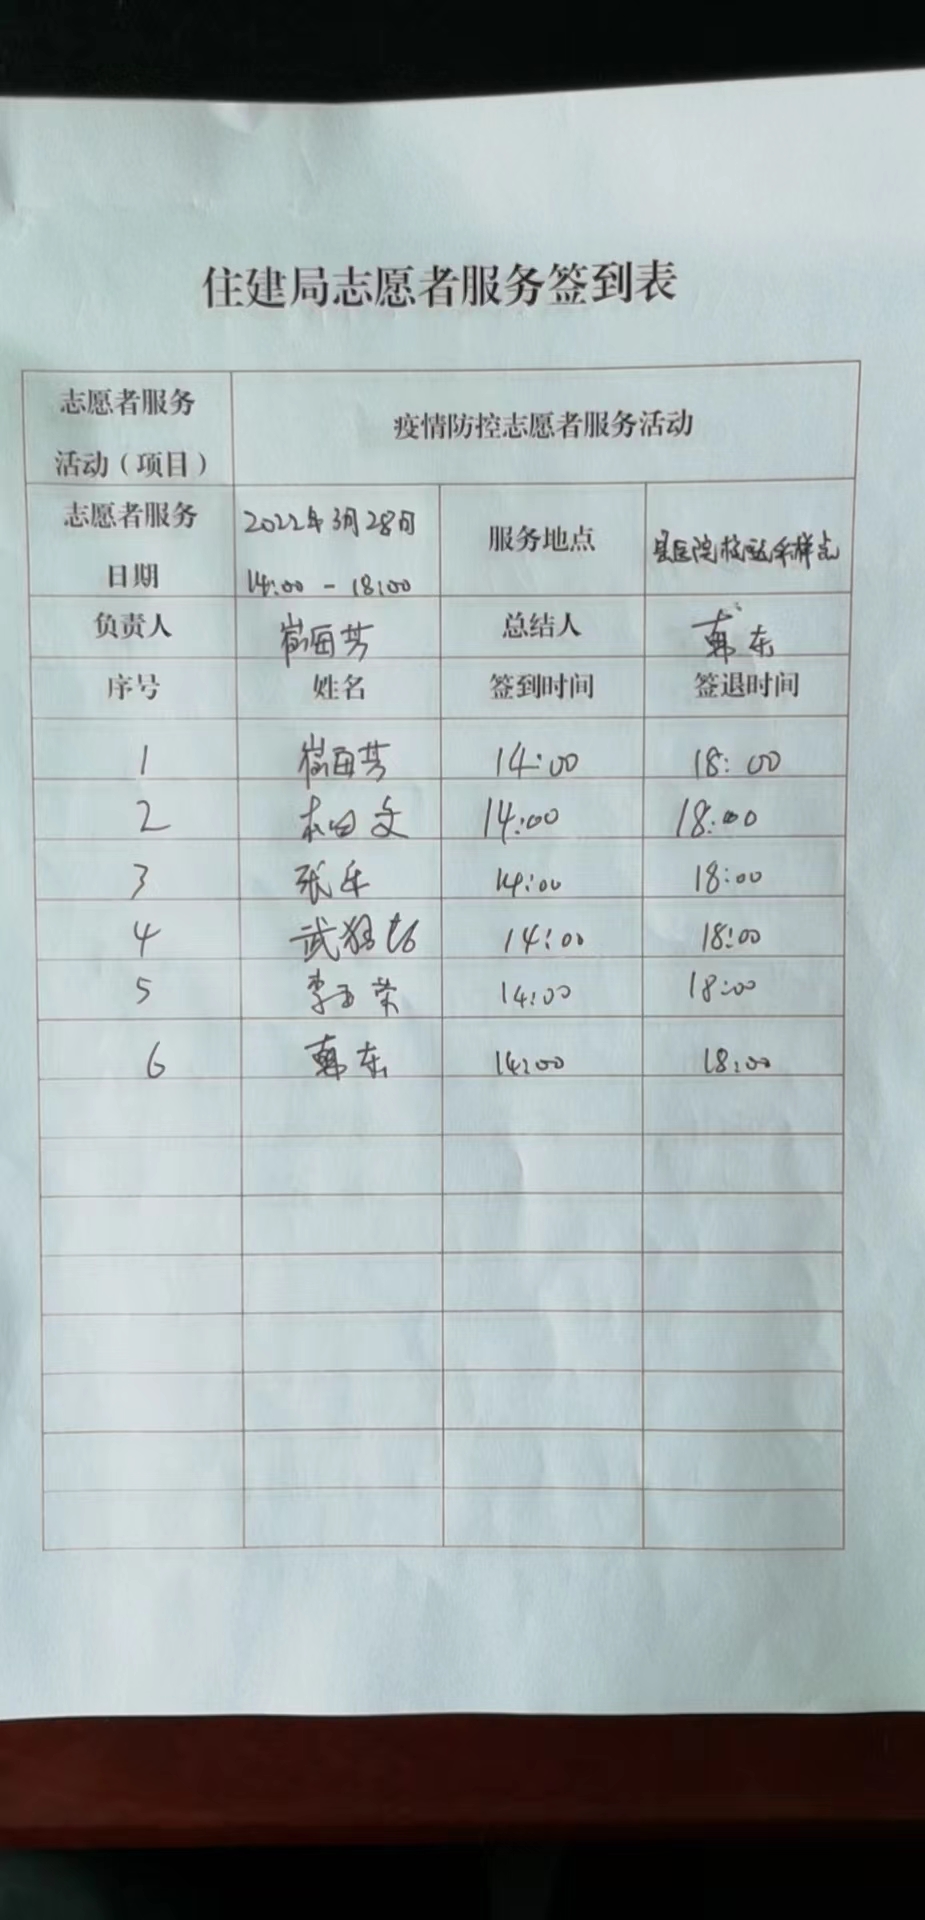 住建局志愿者服务签到表
志愿者服务
活动（项目）
疫情防控志愿者服务活动
志愿者服务
日期
2022年3月28日
14:00 - 18:00
服务地点
县医院核酸采样点
负责人
崔海芳
总结人
韩东
序号 姓名 签到时间 签退时间
1 崔海芳 14:00 18:00
2 文 14:00 18:00
3 张 14:00 18:00
4 武 14:00 18:00
5 李玉荣 14:00 18:00
6 韩东 14:00 18:00